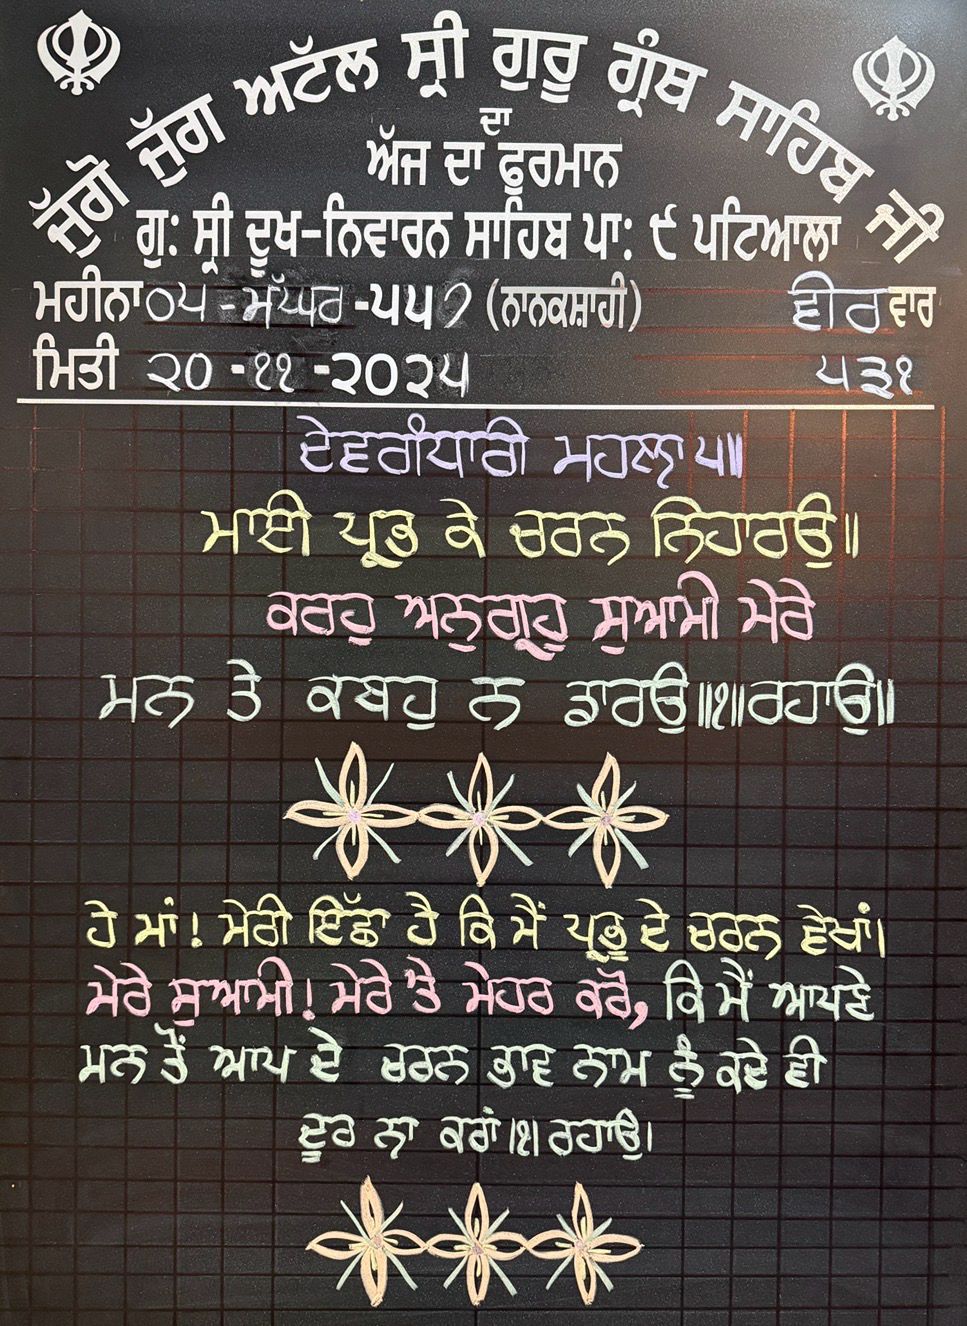 ਜੁੱਗੋ ਜੁੱਗ ਅਟੱਲ ਸ੍ਰੀ ਗੁਰੂ ਗ੍ਰੰਥ ਸਾਹਿਬ ਜੀ
ਦਾ
ਅੱਜ ਦਾ ਫੁਰਮਾਨ
ਗੁ: ਸ੍ਰੀ ਦੂਖ-ਨਿਵਾਰਨ ਸਾਹਿਬ ਪਾ: ੯ ਪਟਿਆਲਾ
ਮਹੀਨਾ ੦੫ - ਮੱਘਰ -੫੫੭ (ਨਾਨਕਸ਼ਾਹੀ) ਵੀਰਵਾਰ
ਮਿਤੀ ੨੦ -੧੧ -੨੦੨੫ ੫੩੧
ਦੇਵਗੰਧਾਰੀ ਮਹਲਾ ੫॥
ਮਾਈ ਪ੍ਰਭ ਕੇ ਚਰਨ ਨਿਹਾਰਉ॥
ਕਰਹੁ ਅਨੁਗ੍ਰਹੁ ਸੁਆਮੀ ਮੇਰੇ
ਮਨ ਤੇ ਕਬਹੁ ਨ ਡਾਰਉ॥੧॥ਰਹਾਉ॥
ਹੇ ਮਾਂ! ਮੇਰੀ ਇੱਛਾ ਹੈ ਕਿ ਮੈਂ ਪ੍ਰਭੂ ਦੇ ਚਰਨ ਵੇਖਾਂ।
ਮੇਰੇ ਸੁਆਮੀ! ਮੇਰੇ 'ਤੇ ਮੇਹਰ ਕਰੋ, ਕਿ ਮੈਂ ਆਪਣੇ
ਮਨ ਤੋਂ ਆਪ ਦੇ ਚਰਨ ਭਾਵ ਨਾਮ ਨੂੰ ਕਦੇ ਵੀ
ਦੂਰ ਨਾ ਕਰਾਂ।੧। ਰਹਾਉ।